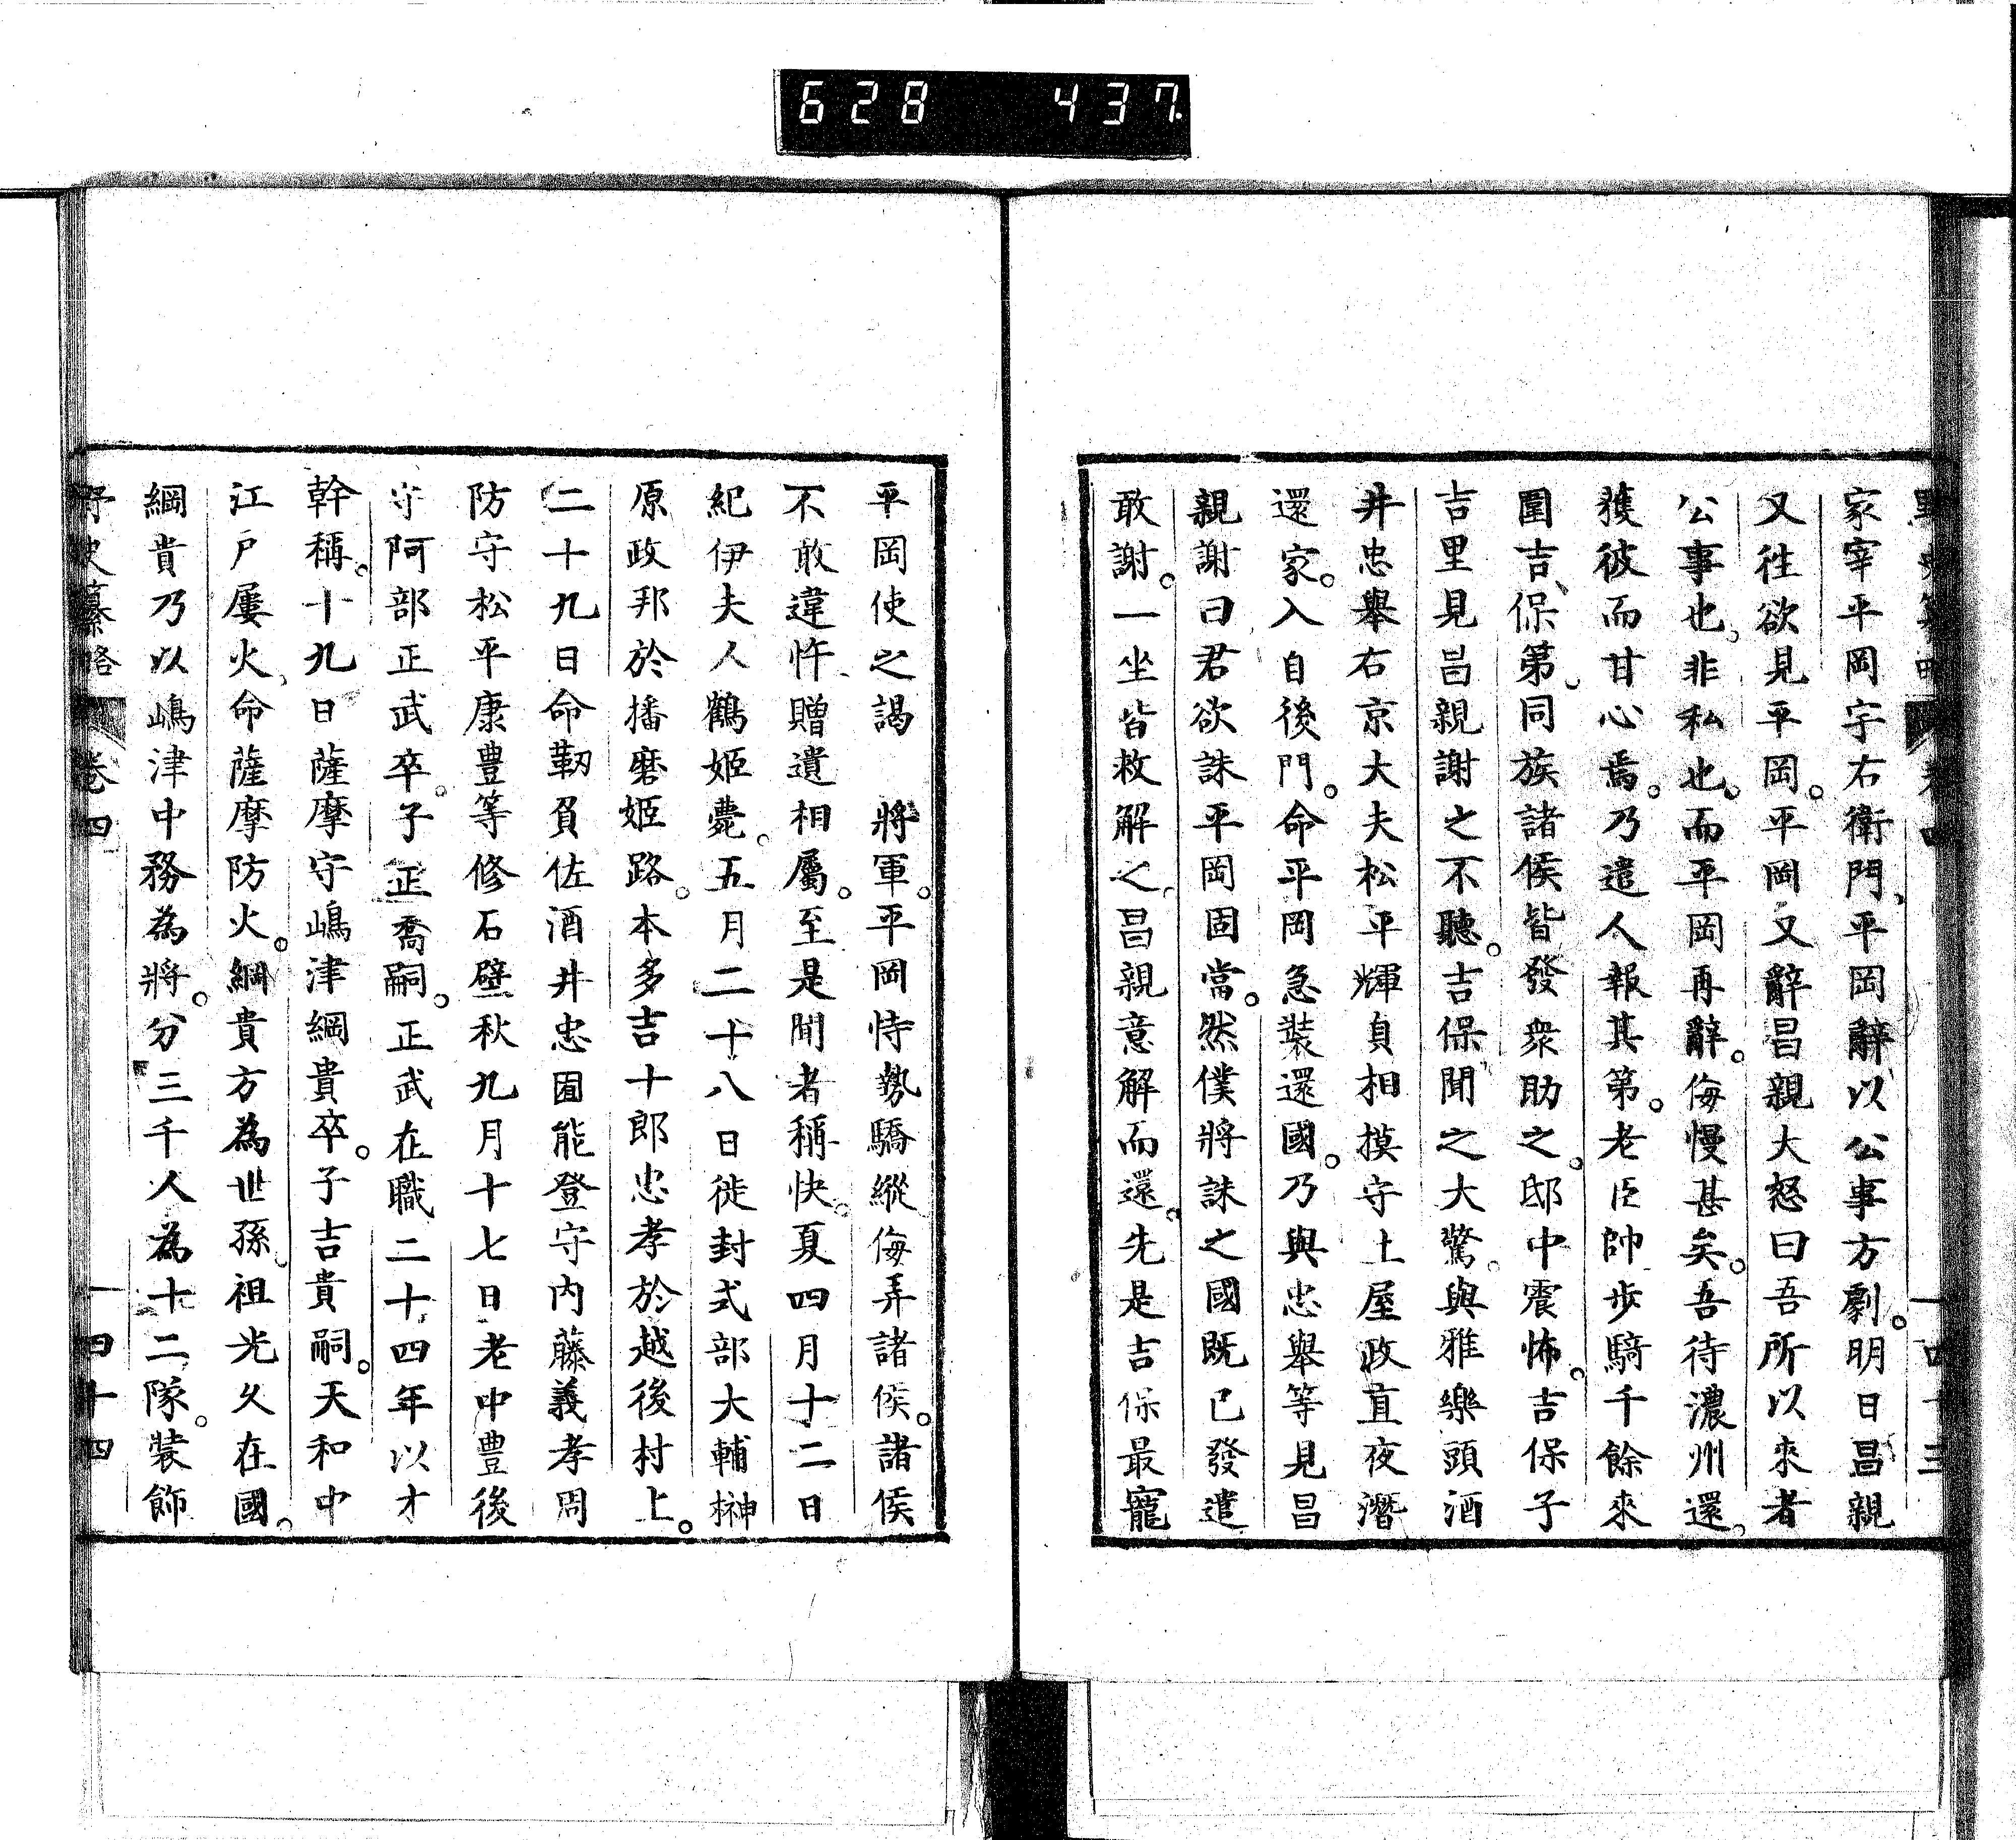 628 437
家宰平岡字右衛門、平岡辭以公事方劇。明日昌親
又往欲見平岡。平岡又辭昌親大怒曰吾所以來者
公事也、非私也。而平岡再辭。侮慢甚矣。吾待濃州還。
獲彼而甘心焉。乃遣人報其第。老臣帥步騎千餘來
圍吉保第。同族諸侯皆發衆助之。邸中震怖。吉保子
吉里見昌親謝之不聽。吉保聞之大驚。與雅樂頭酒
井忠擧右京大夫松平輝貞相摸守土屋政直夜潛
還家。入自後門。命平岡急裝還國。乃與忠擧等見昌
親謝曰君欲誅平岡固當。然僕將誅之國既已發遣
敢謝。一坐皆救解之、昌親意解而還。先是吉保最寵
平岡使之謁　將軍。平岡恃勢驕縱侮弄諸侯。諸侯
不敢違忤贈遺相屬。至是聞者稱快。夏四月十二日
紀伊夫人鶴姬薨。五月二十八日徙封式部大輔榊
原政邦於播磨姬路。本多吉十郎忠孝於越後村上。
二十九日命靱負佐酒井忠囿能登守內藤義孝周
防守松平康豊等修石壁秋九月十七日老中豊後
守阿部正武卒。子正喬嗣。正武在職二十四年以才
幹稱。十九日薩摩守嶋津綱貴卒。子吉貴嗣。天和中
江戶屢火、命薩摩防火。綱貴方為世孫。祖光久在國。
綱貴乃以嶋津中務為將。分三千人為十二隊。裝飾
野史纂略 卷四 一四十四